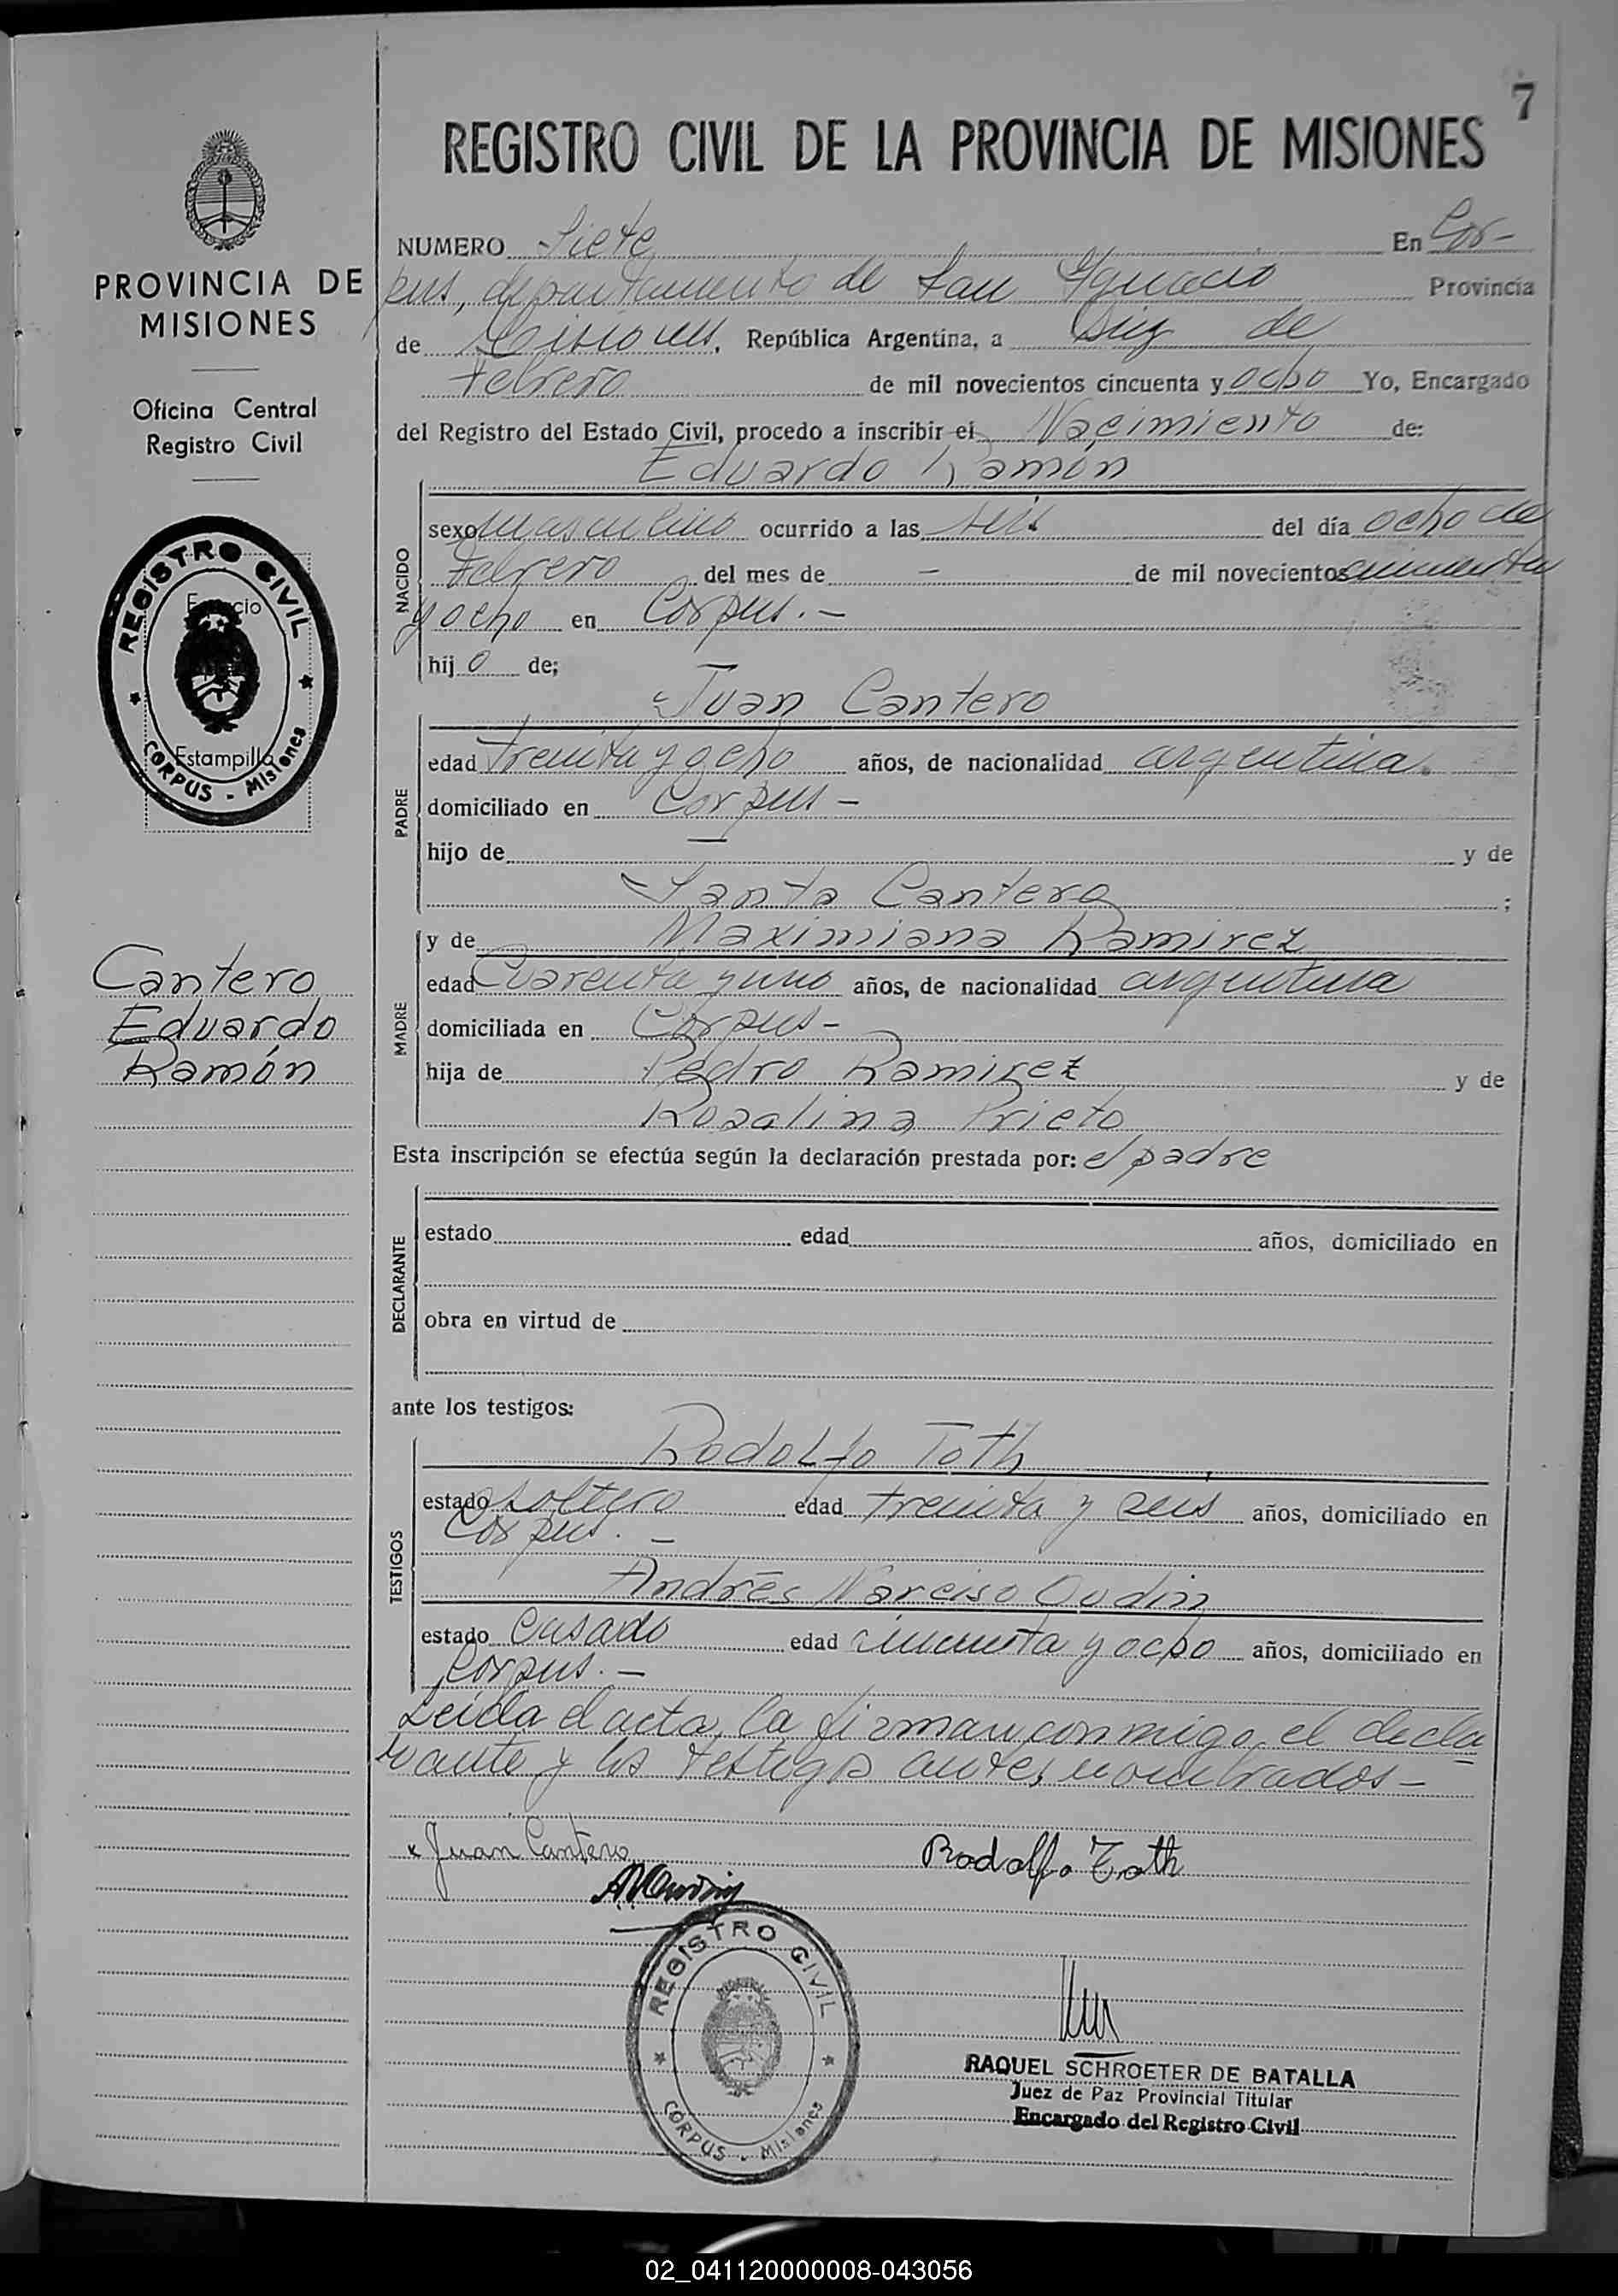 7
REGISTRO CIVIL DE LA PROVINCIA DE MISIONES
PROVINCIA DE
MISIONES
Oficina Central
Registro Civil
REGISTRO CIVIL
Estampilla
CORPUS - Misiones
Cantero
Eduardo
Ramón
NUMERO Siete En Cor-
pus, departamento de San Ignacio Provincia
de Misiones, República Argentina, a diez de
Febrero de mil novecientos cincuenta y ocho Yo, Encargado
del Registro del Estado Civil, procedo a inscribir el Nacimiento de:
Eduardo Ramón
NACIDO
sexo masculino ocurrido a las seis del día ocho de
Febrero del mes de - de mil novecientos cincuenta
y ocho en Corpus.-
hij o de;
Juan Cantero
PADRE
edad treinta y ocho años, de nacionalidad argentina.
domiciliado en Corpus -
hijo de — y de
Santa Cantero ;
y de Maximiana Ramirez
MADRE
edad Cuarenta y uno años, de nacionalidad argentina
domiciliada en Corpus -
hija de Pedro Ramirez y de
Rosalina Prieto
Esta inscripción se efectúa según la declaración prestada por: el padre
DECLARANTE
estado edad años, domiciliado en
obra en virtud de
ante los testigos:
Rodolfo Toth
TESTIGOS
estado soltero edad treinta y seis años, domiciliado en
Corpus. -
Andrés Narciso Oudin
estado casado edad cincuenta y ocho años, domiciliado en
Corpus. -
Leída el acta, la firman conmigo, el decla
rante y los testigos antes nombrados -
x Juan Cantero
Rodolfo Toth
REGISTRO CIVIL
CORPUS - Misiones
RAQUEL SCHROETER DE BATALLA
Juez de Paz Provincial Titular
Encargado del Registro Civil
02_041120000008-043056